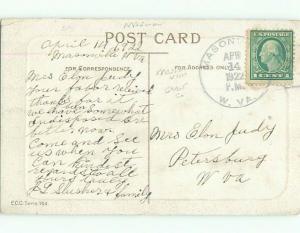 POST CARD
FOR CORRESPONDENCE
FOR ADDRESS ONLY
April 14 1922
Maysville
W Va
Mrs Elon Judy
your favor recieved
thanks for it
we have Somewhat
indisposed but
better now
Come and See
us when You
Can Kindest
regards to all
Yours truly
Slusher & family
MASON
APR
14
1922
P.M.
W. VA.
1 CENT 1
Mrs Elon Judy
Petersburg
W Va
E.C.C. Series 764